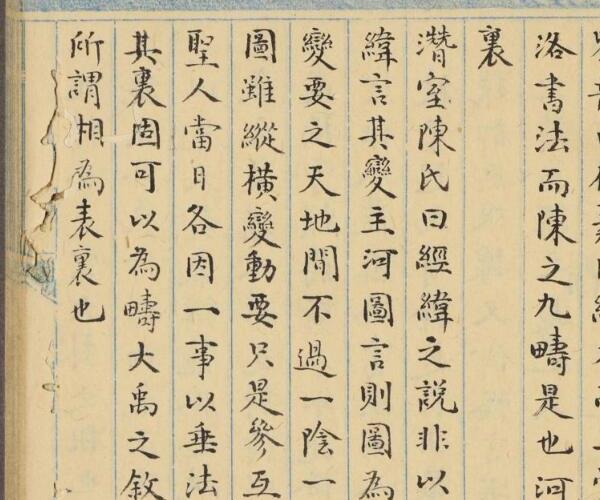 洛書法而陳之九疇是也河
裏
潛室陳氏曰經緯之說非以
緯言其變主河圖言則圖為
變要之天地間不過一陰一
圖雖縱橫變動要只是參互
聖人當日各因一事以垂法
其裏固可以為疇大禹之敘
所謂相為表裏也